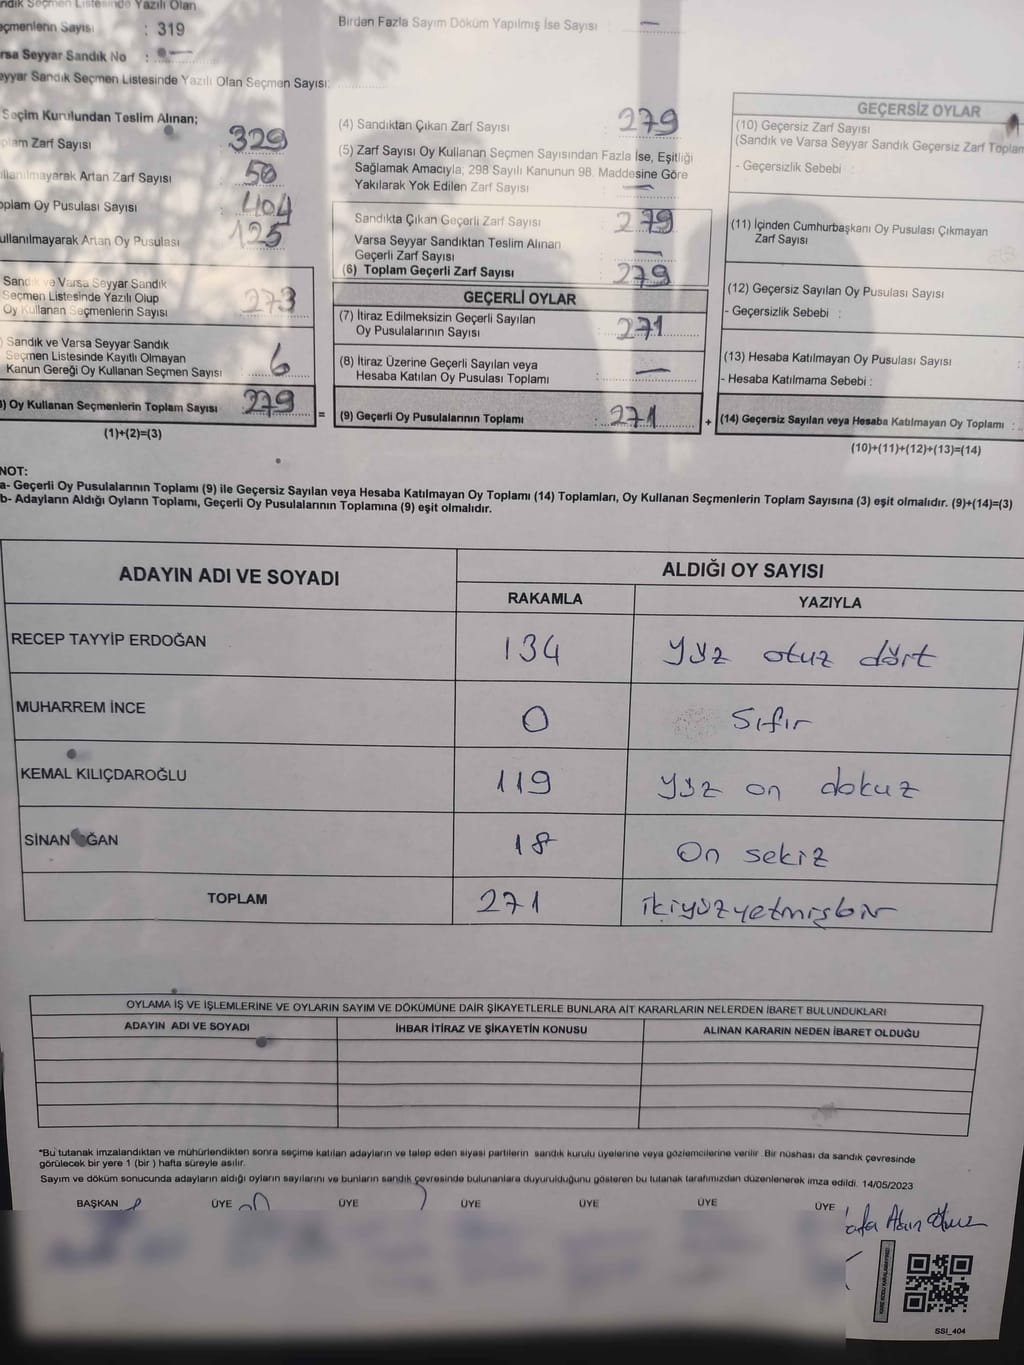 ndık Seçmen Listesinde Yazılı Olan
eçmenlerin Sayısı : 319
rsa Seyyar Sandık No : —
eyyar Sandık Seçmen Listesinde Yazılı Olan Seçmen Sayısı:
Seçim Kurulundan Teslim Alınan;
plam Zarf Sayısı : 329
ullanılmayarak Artan Zarf Sayısı : 50
oplam Oy Pusulası Sayısı : 404
ullanılmayarak Artan Oy Pusulası : 125
Sandık ve Varsa Seyyar Sandık
Seçmen Listesinde Yazılı Olup
Oy Kullanan Seçmenlerin Sayısı : 273
) Sandık ve Varsa Seyyar Sandık
Seçmen Listesinde Kayıtlı Olmayan
Kanun Gereği Oy Kullanan Seçmen Sayısı : 6
) Oy Kullanan Seçmenlerin Toplam Sayısı 279 =
(1)+(2)=(3)
Birden Fazla Sayım Döküm Yapılmış İse Sayısı : —
(4) Sandıktan Çıkan Zarf Sayısı : 279
(5) Zarf Sayısı Oy Kullanan Seçmen Sayısından Fazla İse, Eşitliği
Sağlamak Amacıyla, 298 Sayılı Kanunun 98. Maddesine Göre
Yakılarak Yok Edilen Zarf Sayısı : —
Sandıkta Çıkan Geçerli Zarf Sayısı : 279
Varsa Seyyar Sandıktan Teslim Alınan
Geçerli Zarf Sayısı : —
(6) Toplam Geçerli Zarf Sayısı : 279
GEÇERLİ OYLAR
(7) İtiraz Edilmeksizin Geçerli Sayılan
Oy Pusulalarının Sayısı : 271
(8) İtiraz Üzerine Geçerli Sayılan veya
Hesaba Katılan Oy Pusulası Toplamı : —
(9) Geçerli Oy Pusulalarının Toplamı : 271 +
GEÇERSİZ OYLAR
(10) Geçersiz Zarf Sayısı
(Sandık ve Varsa Seyyar Sandık Geçersiz Zarf Toplam
- Geçersizlik Sebebi :
(11) İçinden Cumhurbaşkanı Oy Pusulası Çıkmayan
Zarf Sayısı
(12) Geçersiz Sayılan Oy Pusulası Sayısı
- Geçersizlik Sebebi :
(13) Hesaba Katılmayan Oy Pusulası Sayısı :
- Hesaba Katılmama Sebebi :
(14) Geçersiz Sayılan veya Hesaba Katılmayan Oy Toplamı :
(10)+(11)+(12)+(13)=(14)
NOT:
a- Geçerli Oy Pusulalarının Toplamı (9) ile Geçersiz Sayılan veya Hesaba Katılmayan Oy Toplamı (14) Toplamları, Oy Kullanan Seçmenlerin Toplam Sayısına (3) eşit olmalıdır. (9)+(14)=(3)
b- Adayların Aldığı Oyların Toplamı, Geçerli Oy Pusulalarının Toplamına (9) eşit olmalıdır.
ADAYIN ADI VE SOYADI
ALDIĞI OY SAYISI
RAKAMLA YAZIYLA
RECEP TAYYİP ERDOĞAN 134 yüz otuz dört
MUHARREM İNCE 0 Sıfır
KEMAL KILIÇDAROĞLU 119 yüz on dokuz
SİNAN OĞAN 18 On sekiz
TOPLAM 271 ikiyüzyetmişbir
OYLAMA İŞ VE İŞLEMLERİNE VE OYLARIN SAYIM VE DÖKÜMÜNE DAİR ŞİKAYETLERLE BUNLARA AİT KARARLARIN NELERDEN İBARET BULUNDUKLARI
ADAYIN ADI VE SOYADI İHBAR İTİRAZ VE ŞİKAYETİN KONUSU ALINAN KARARIN NEDEN İBARET OLDUĞU
*Bu tutanak imzalandıktan ve mühürlendikten sonra seçime katılan adayların ve talep eden siyasi partilerin sandık kurulu üyelerine veya gözlemcilerine verilir. Bir nüshası da sandık çevresinde
görülecek bir yere 1 (bir) hafta süreyle asılır.
Sayım ve döküm sonucunda adayların aldığı oyların sayılarını ve bunların sandık çevresinde bulunanlara duyurulduğunu gösteren bu tutanak tarafımızdan düzenlenerek imza edildi. 14/05/2023
BAŞKAN ÜYE ÜYE ÜYE ÜYE ÜYE ÜYE
SSI_404